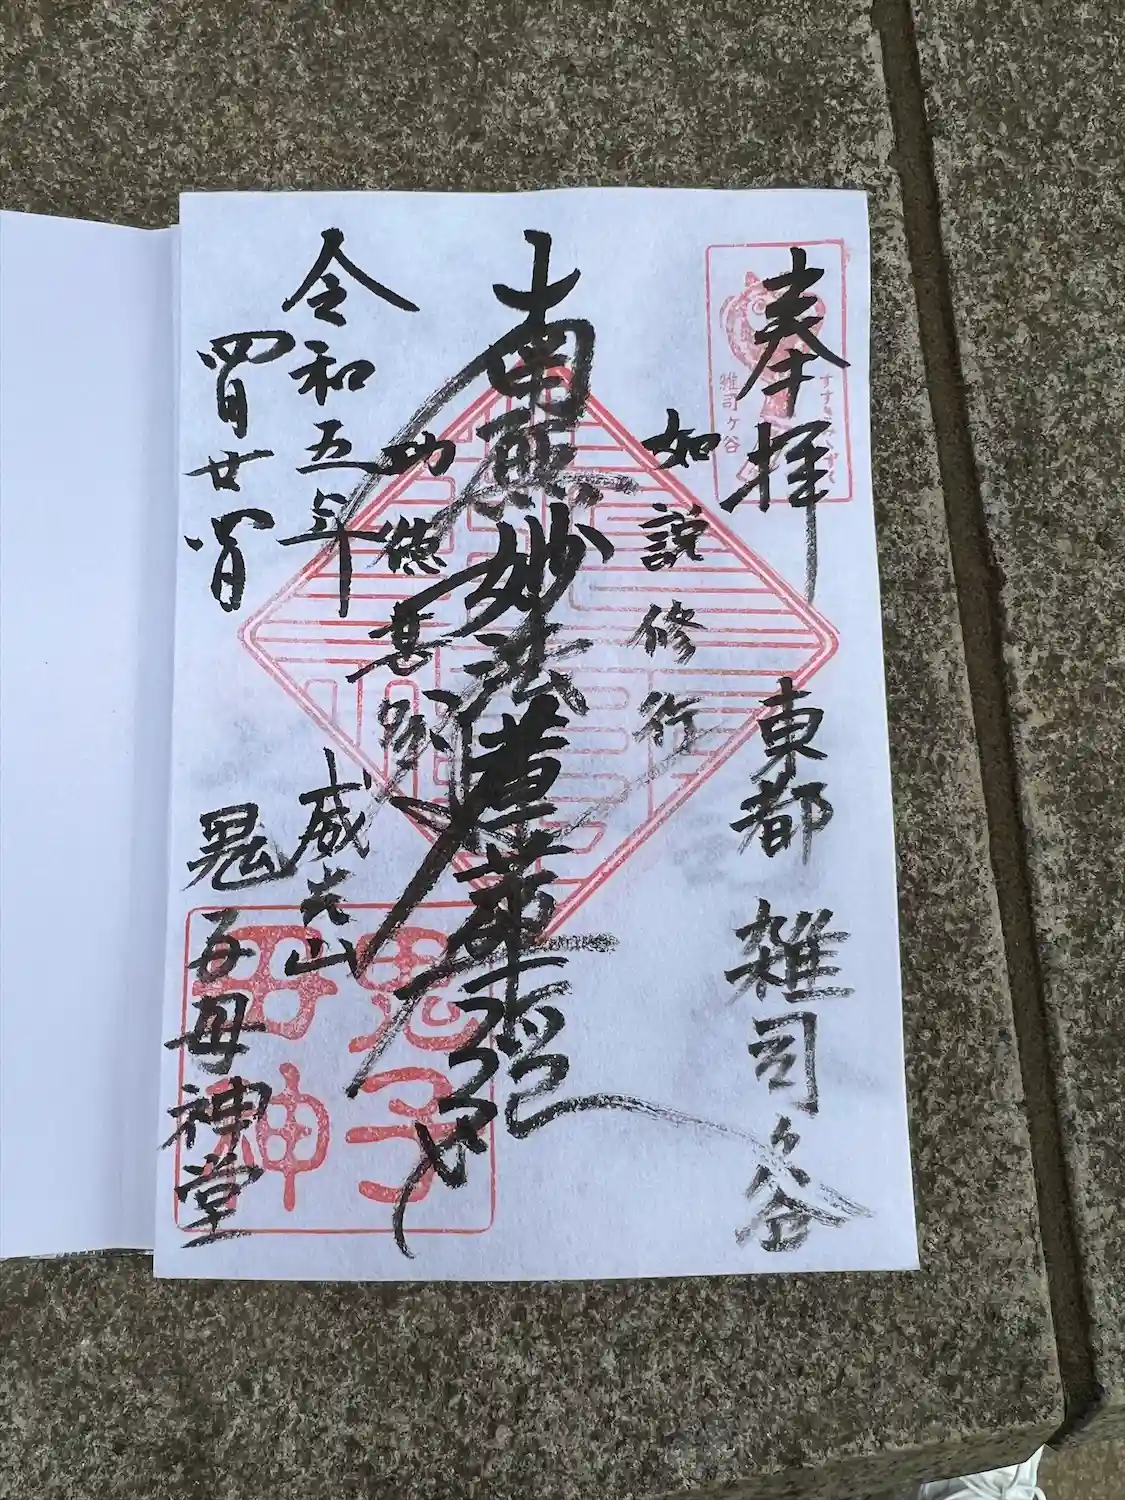 奉拝
東都 雑司谷
すすきみみずく
雑司ヶ谷
如説修行
南無妙法蓮華経
功徳甚深
令和五年
四月廿四日
威光山
鬼子母神堂
鬼子
母神